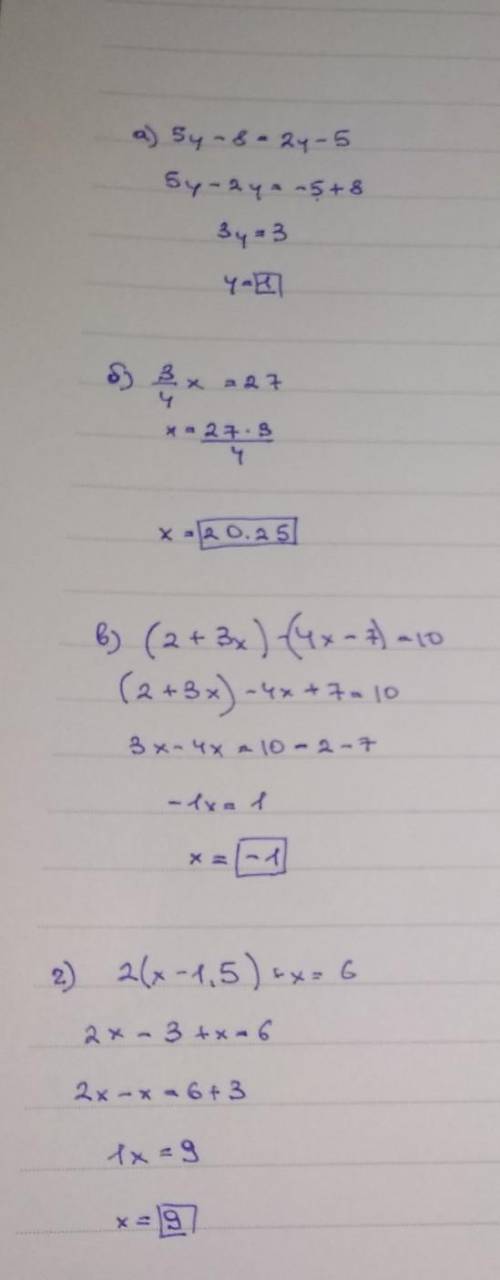 а) 5y - 8 = 2y - 5
5y - 2y = -5 + 8
3y = 3
y = 1
б) 3/4 x = 27
x = 27 · 3 / 4
x = 20.25
в) (2 + 3x) - (4x - 7) = 10
(2 + 3x) - 4x + 7 = 10
3x - 4x = 10 - 2 - 7
-1x = 1
x = -1
г) 2(x - 1,5) + x = 6
2x - 3 + x = 6
2x - x = 6 + 3
1x = 9
x = 9